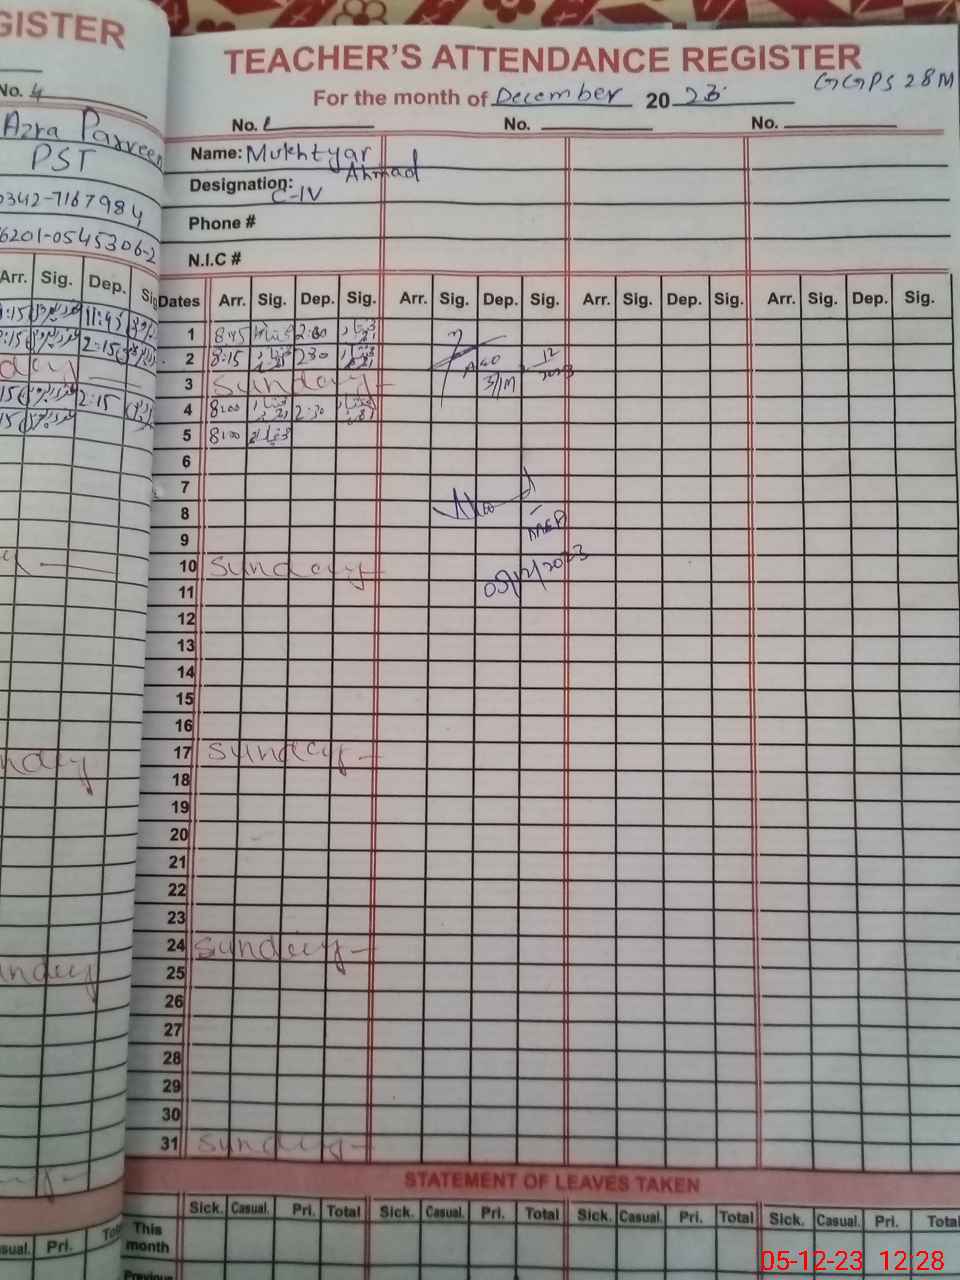 GISTER
No. 4
Azra Parveen
PST
0342-7167984
6201-0545306-2
Arr. Sig. Dep. Sig
:15 11:45
:15 2:15
day
15 2:15
15
nday
unday
Tot
asual. Pri.
TEACHER'S ATTENDANCE REGISTER
GGPS 28M
For the month of December 20 23
No. 1 No. No.
Name: Mukhtyar Ahmad
Designation: C-IV
Phone #
N.I.C #
Dates Arr. Sig. Dep. Sig. Arr. Sig. Dep. Sig. Arr. Sig. Dep. Sig. Arr. Sig. Dep. Sig.
1 8:45 مختیار 2:00 مختیار
2 8:15 مختیار 2:30 مختیار 12
3 Sunday 2023
4 8:00 مختیار 2:30 مختیار
5 8:00 مختیار
6
7
8
9 MEA
10 Sunday
11 05/12/2023
12
13
14
15
16
17 Sunday
18
19
20
21
22
23
24 Sunday
25
26
27
28
29
30
31 Sunday
STATEMENT OF LEAVES TAKEN
Sick. Casual. Pri. Total Sick. Casual. Pri. Total Sick. Casual. Pri. Total Sick. Casual. Pri. Total
This month
Previous
05-12-23 12:28